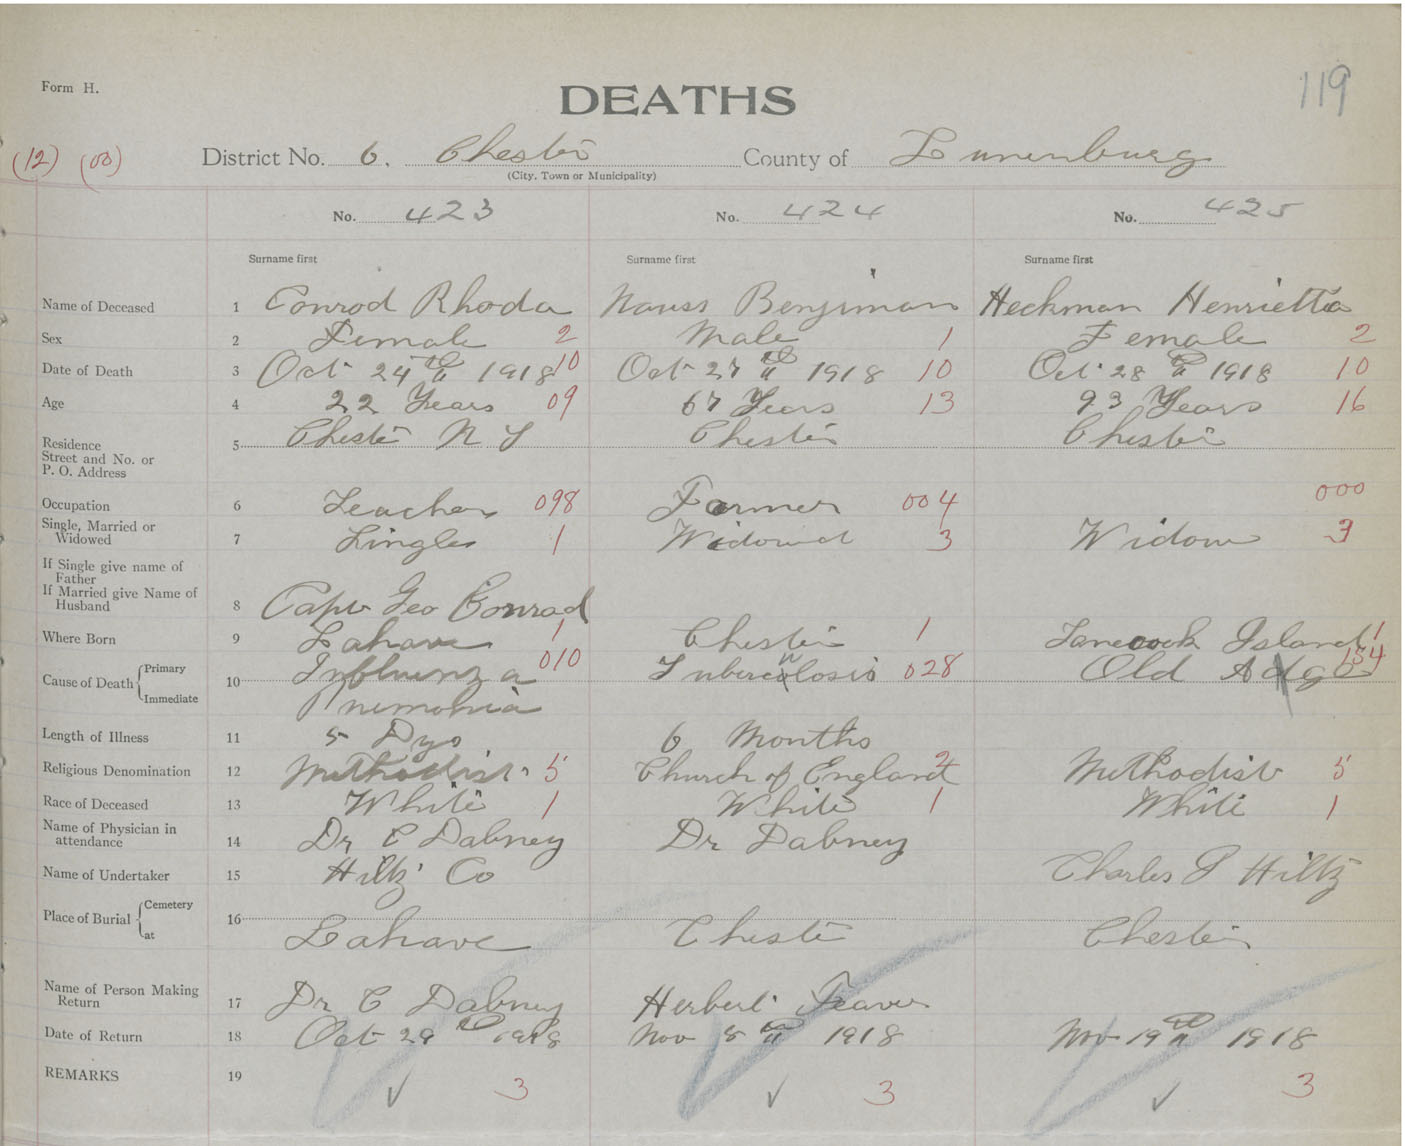 Form H.
DEATHS
119
(12) (00) District No. 6. Chester County of Lunenburg
(City, Town or Municipality)
No. 423 No. 424 No. 425
Surname first Surname first Surname first
Name of Deceased 1 Conrod Rhoda Nauss Benjiman Heckman Henrietta
Sex 2 Female 2 Male 1 Female 2
Date of Death 3 Oct 24th 1918 10 Oct 27th 1918 10 Oct 28th 1918 10
Age 4 22 Years 09 67 Years 13 93 Years 16
Residence Street and No. or P. O. Address 5 Chester N S Chester Chester
Occupation 6 Teacher 098 Farmer 004 000
Single, Married or Widowed 7 Single 1 Widowed 3 Widow 3
If Single give name of Father
If Married give Name of Husband 8 Capt Geo Conrad
Where Born 9 Lahave 1 Chester 1 Tancook Island 1
Cause of Death { Primary Immediate 10 Influenza 010 Tuberculosis 028 Old Age 154
Pnemonia
Length of Illness 11 5 Dys 6 Months
Religious Denomination 12 Methodist 5 Church of England 2 Methodist 5
Race of Deceased 13 White 1 White 1 White 1
Name of Physician in attendance 14 Dr C Dabney Dr Dabney
Name of Undertaker 15 Hiltz Co Charles P Hiltz
Place of Burial { Cemetery at 16 Lahave Chester Chester
Name of Person Making Return 17 Dr C Dabney Herbert Feaver
Date of Return 18 Oct 29th 1918 Nov 5th 1918 Nov 19th 1918
REMARKS 19 3 3 3